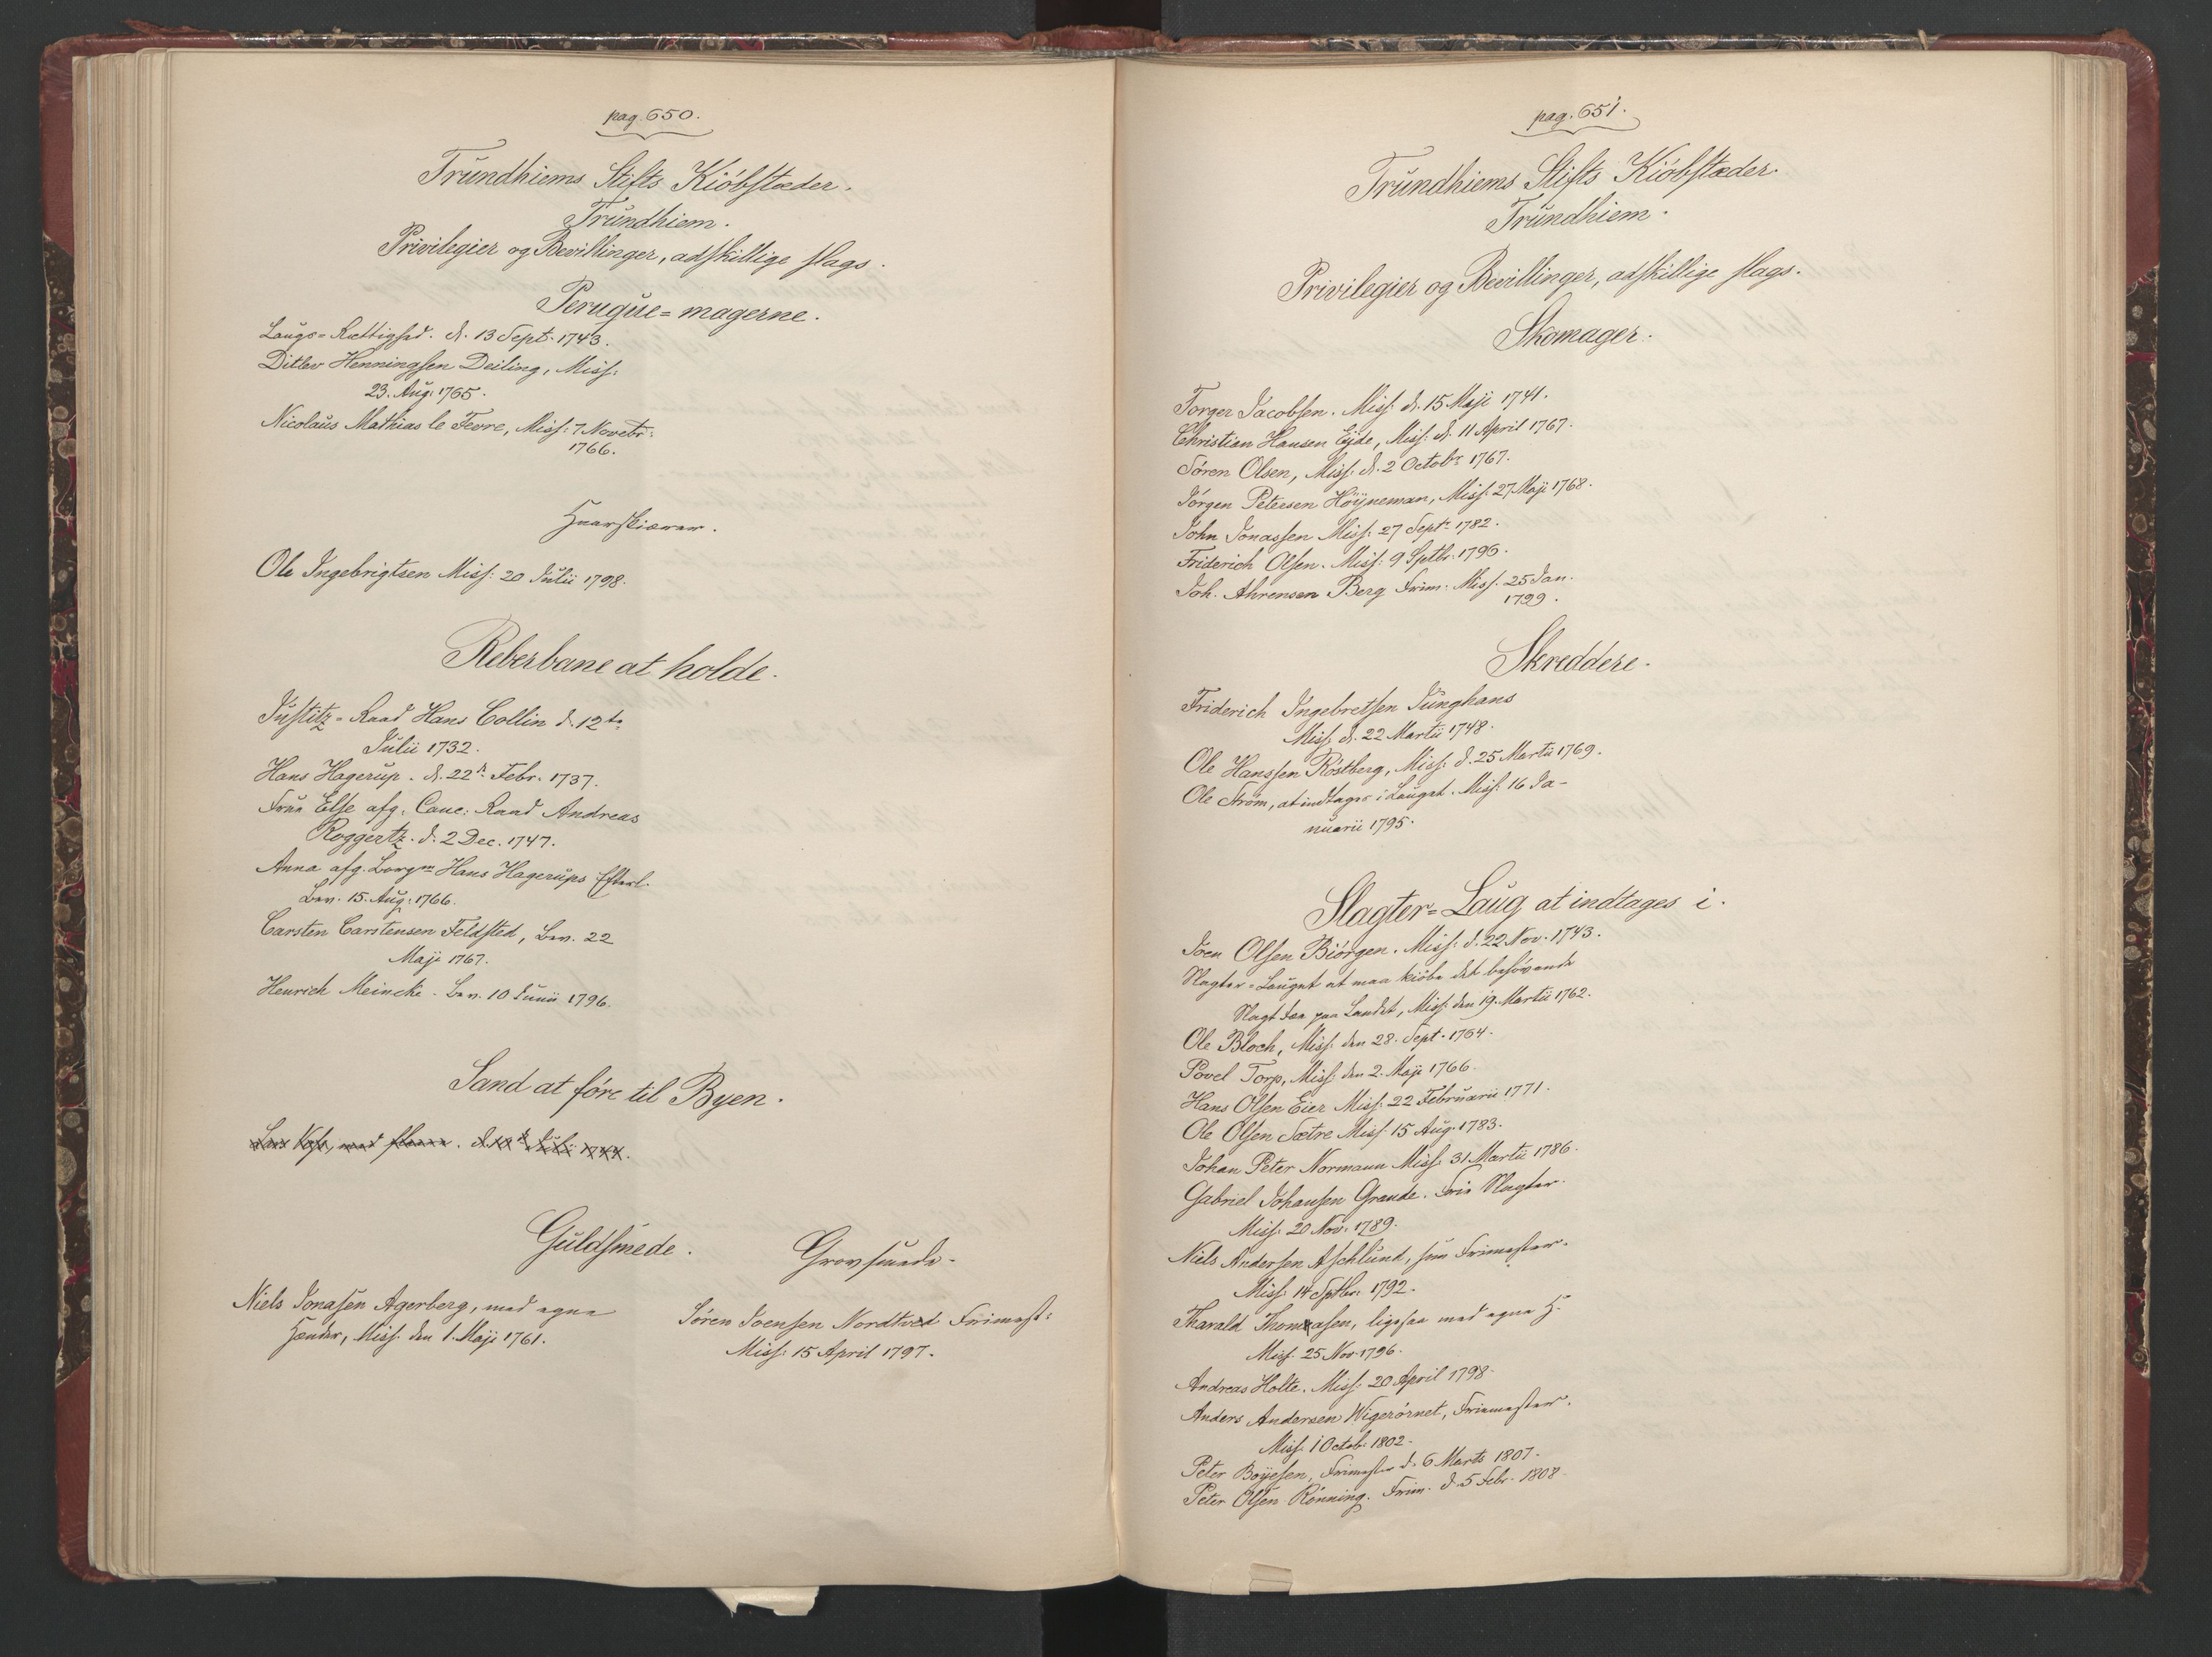 pag. 650.
Trundhiems Stifts Kiøbstæder.
Trundhiem.
Privilegier og Bevillinger, adskillige slags.
Peruque=magerne.
Laugs=Rettighed. d. 13 Sept. 1743.
Ditlev Henningsen Deiling, Miss:
23. Aug: 1765.
Nicolaus Mathias le Fevre, Miss: 7 Novebr:
1766.
Huarskiærer.
Ole Ingebrigtsen Miss: 20 Julii 1798.
Reberbane at holde.
Justitz=Raad Hans Collin d. 12te
Julii 1732.
Hans Hagerup. d. 22de Febr. 1737.
Frue Else afg. Canc: Raad Andreas
Roggertz. d. 2 Dec. 1747.
Anna afg. Borgm Hans Hagerups Efterl.
Bev. 15. Aug: 1766.
Carsten Carstensen Feldsted, Bev. 22
Maji 1767.
Henrich Meincke. Bev. 10 Junii 1796.
Sand at føre til Byen.
d. Julii 1744.
Guldsmede.
Niels Jonasen Agerberg, med egne
Hænder, Miss. den 1. Maji 1761.
Grovsmede.
Søren Joensen Nordtvedt Frimest:
Miss: 15 April 1797.
pag. 651.
Trundhiems Stifts Kiøbstæder.
Trundhiem.
Privilegier og Bevillinger, adskillige slags.
Skomager.
Torger Jacobsen. Miss: d. 15 Maji 1741.
Christian Hansen Eide, Miss: d. 11 April 1767.
Søren Olsen, Miss: d. 2 Octobr 1767.
Jørgen Petersen Høyneman, Miss: 27 Maji 1768.
John Jonassen Miss: 27 Septr 1782.
Friderich Olsen. Miss: 9 Sptbr: 1796.
Joh. Ahrensen Berg Frim: Miss. 25 Jan.
1799.
Skreddere.
Friderich Ingebretsen Junghans
Miss. d. 22 Martii 1748.
Ole Hanssen Røstberg, Miss: d. 25 Martii 1769.
Ole Strøm, at indtages i Lauget. Miss: 16 Ja-
nuarii 1795.
Slagter=Laug at indtages i.
Joen Olsen Biørgen. Miss: d. 22 Nov. 1743.
Slagter=Lauget at maa kiøbe det behøvende
Slagt Fæe paa Landet, Miss: den 19. Martii 1762.
Ole Bloch, Miss: den 28. Sept. 1764.
Povel Torp, Miss: den 2. Maji 1766.
Hans Olsen Eier Miss: 22 Februarii 1771.
Ole Olsen Sætre Miss. 15 Aug. 1783.
Johan Peter Normann Miss: 31 Martii 1786.
Gabriel Johansen Graude. Frie Slagter.
Miss: 20 Nov: 1789.
Niels Andersen Aschlund, som Frimester.
Miss: 14 Sptbr: 1792.
Tharald Thomasen, ligesaa med egne H.
Miss. 25 Nov. 1796.
Andreas Holte. Miss: 20 April 1798.
Anders Andersen Wigerørnet, Friemester.
Miss. 1 Octob: 1802.
Peter Boyesen, Frimester d. 6 Marts 1807.
Peter Olsen Rønning. Frim. d. 5 Febr. 1808.